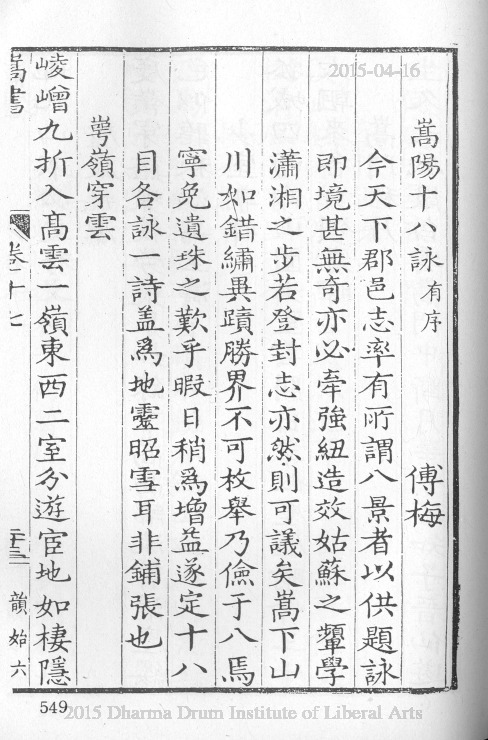 2015-04-16
嵩陽十八詠有序 傅梅
今天下郡邑志率有所謂八景者以供題詠
即境甚無奇亦必牽強紐造效姑蘇之顰學
瀟湘之步若登封志亦然則可議矣嵩下山
川如錯繡異蹟勝界不可枚舉乃儉于八焉
寧免遺珠之歎乎暇日稍爲增益遂定十八
目各詠一詩盖爲地靈昭雪耳非鋪張也
崿嶺穿雲
崚嶒九折入高雲一嶺東西二室分遊宦地如棲隱
嵩書 卷二十七 二十三 韻始六
549
2015 Dharma Drum Institute of Liberal Arts